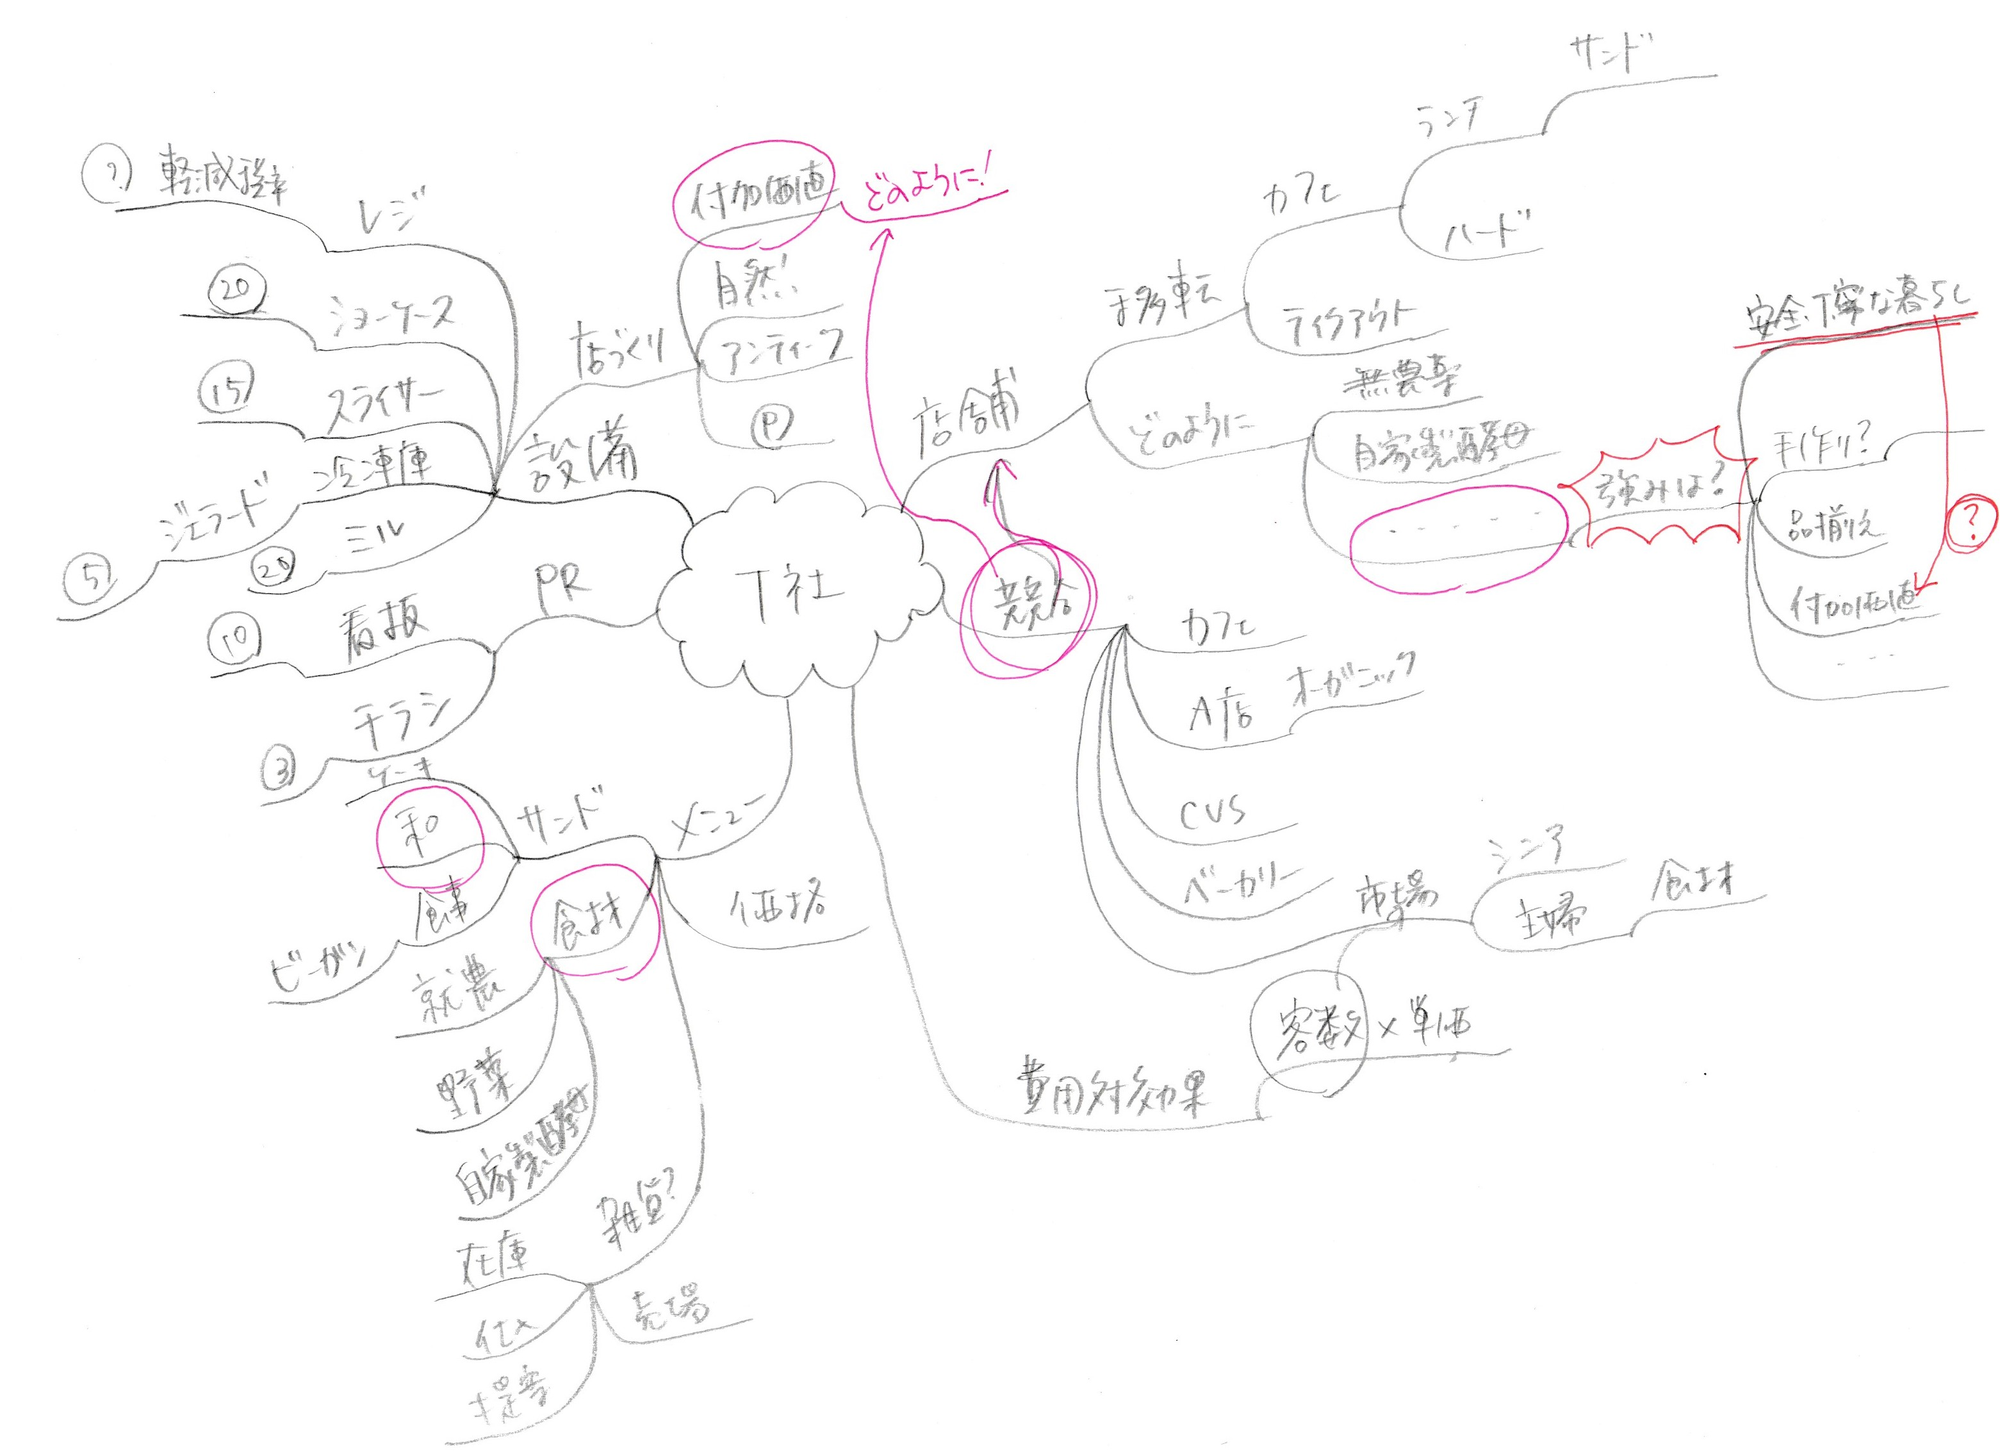 サンド
ランチ
カフェ
ハード
移転
テイクアウト
店舗
どのように
無農薬
自家製酵母
・・・・・
強みは?
安全・丁寧な暮らし
手作り?
品揃え
付加価値
・・・
?
? 軽減税率
レジ
20
ショーケース
15
スライサー
冷凍庫
5
ジェラード
20
ミル
設備
店づくり
付加価値
どのように!
自然!
アンティーク
P
T社
PR
10
看板
3
チラシ
競合
カフェ
A店
オーガニック
CVS
ベーカリー
市場
シニア
主婦
食材
費用対効果
客数×単価
メニュー
サンド
ケーキ
和
食事
ビーガン
食材
就農
野菜
自家製酵母
価格
雑貨?
在庫
仕入
提案
売場